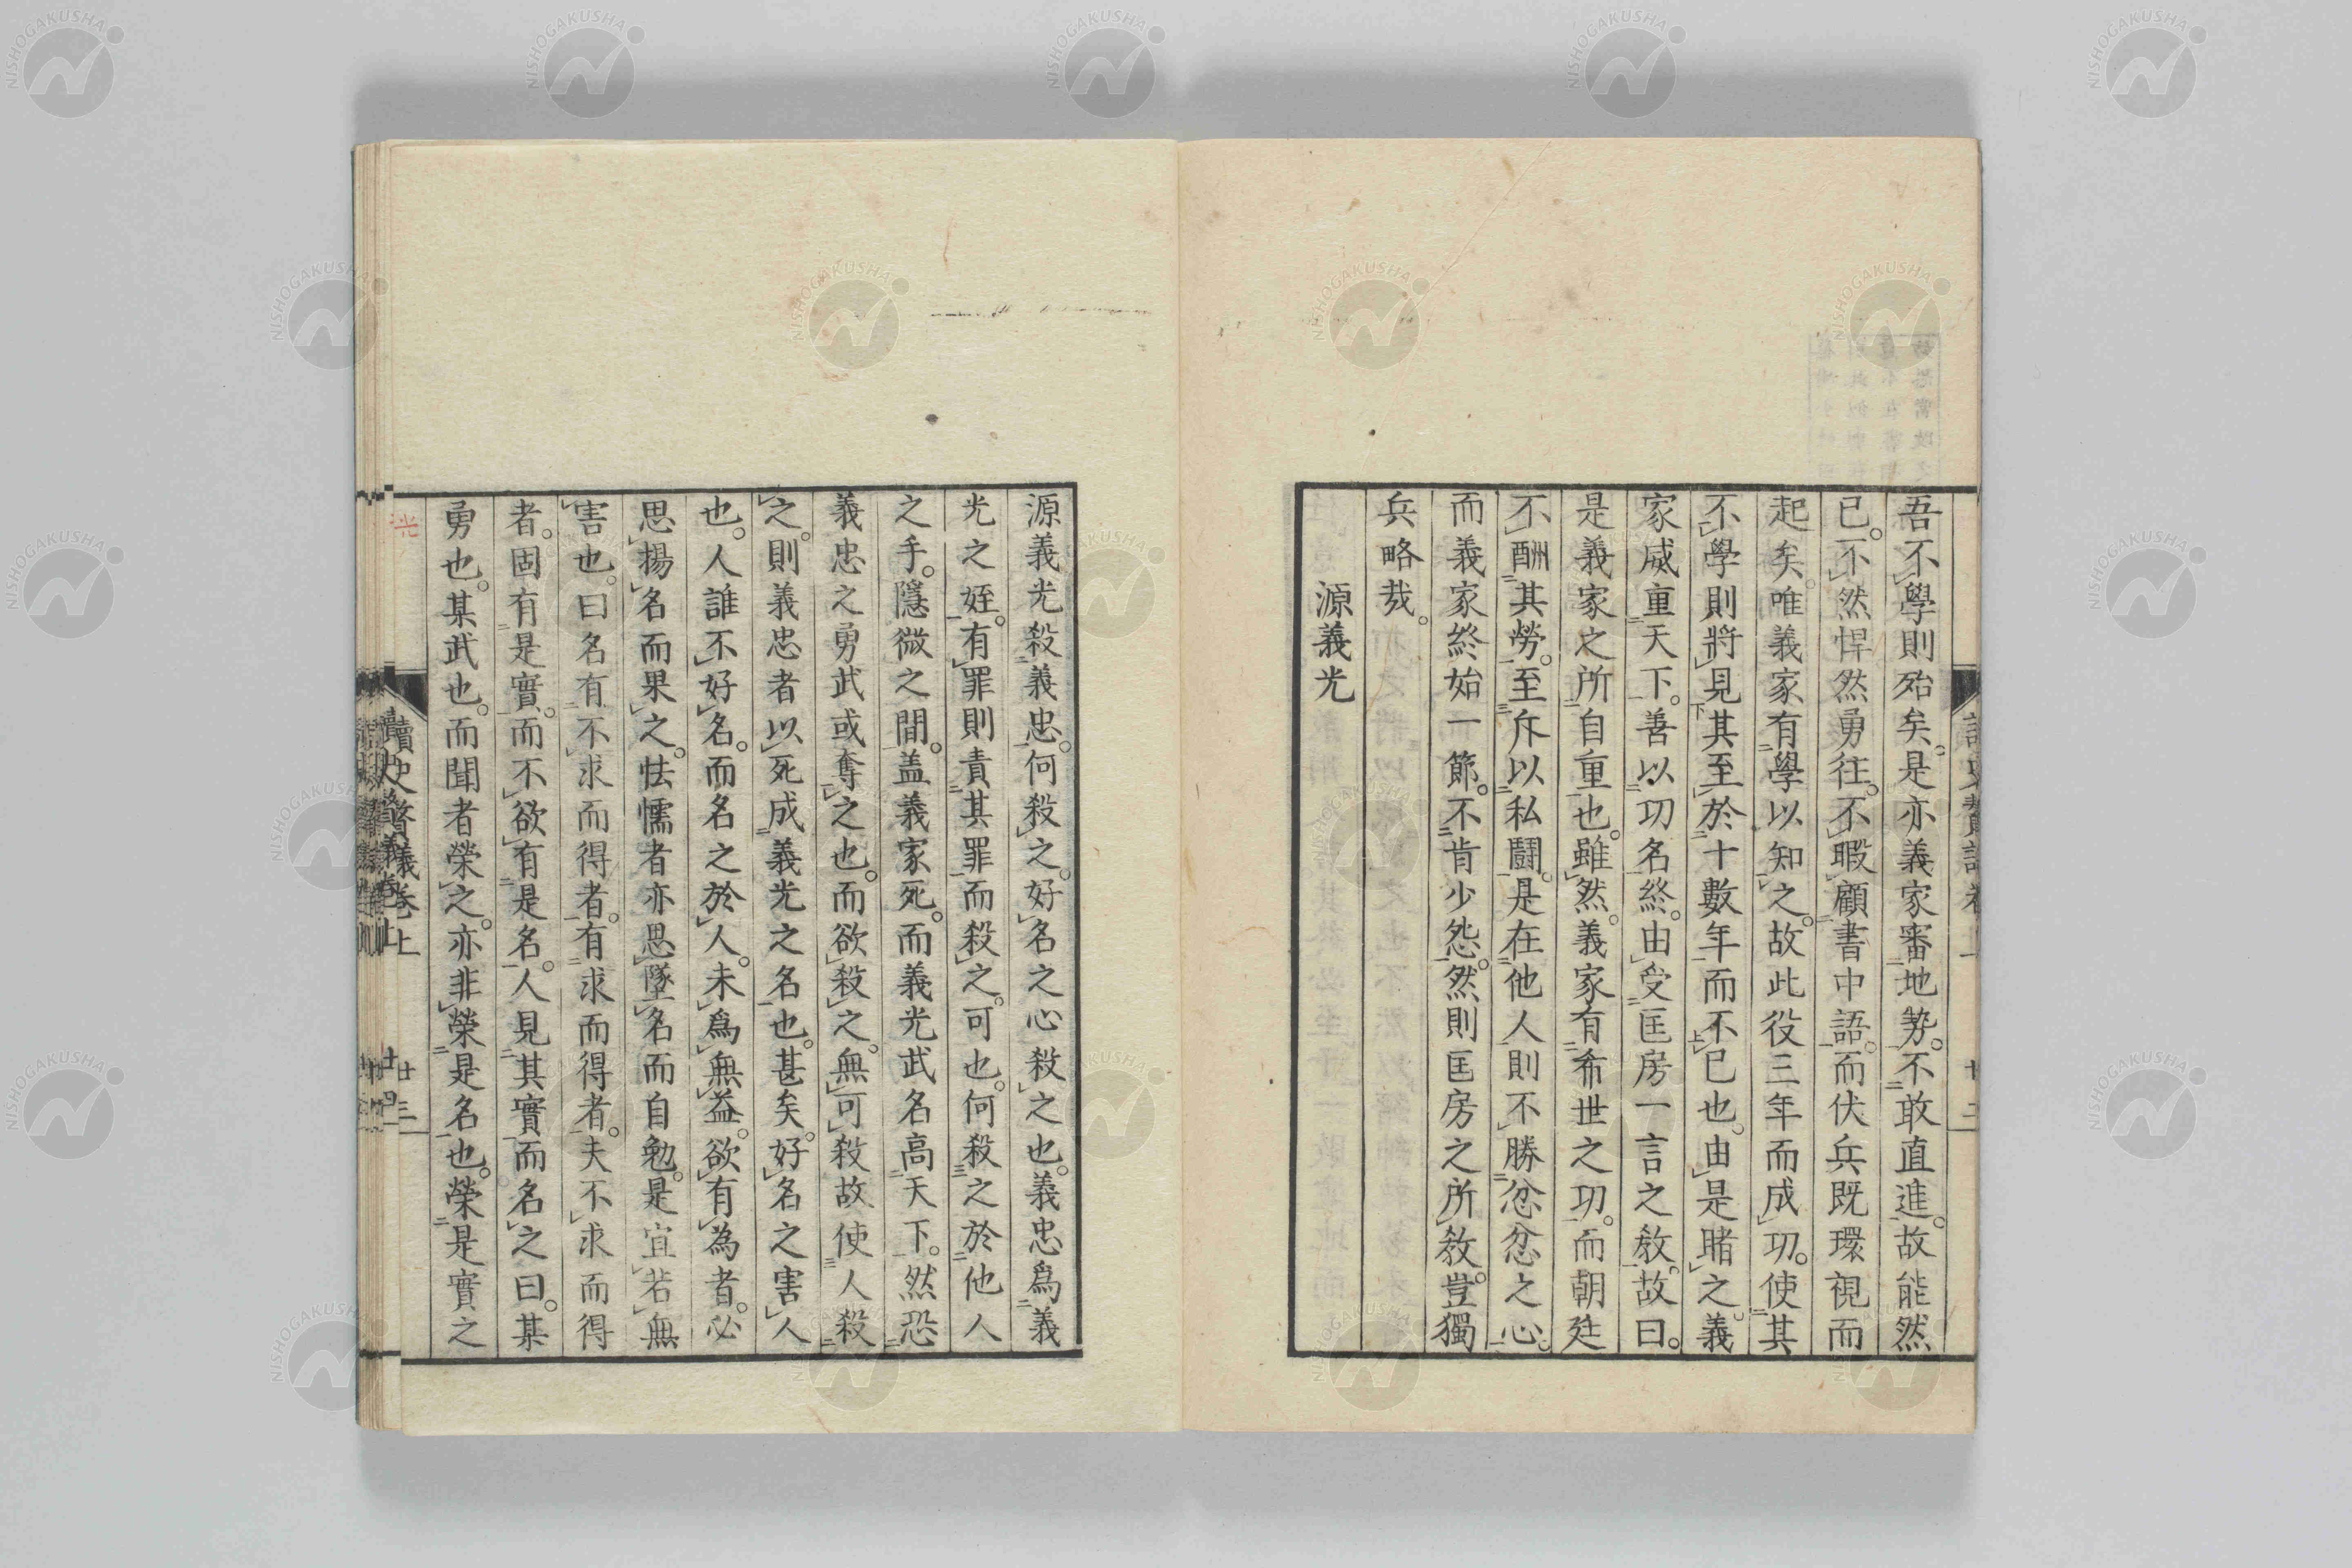 吾不學則殆矣。是亦義家審地勢。不敢直進。故能然
已。不然悍然勇往。不暇顧書中語。而伏兵既環視而
起矣。唯義家有學以知之。故此役三年而成功。使其
不學則將見其至於十數年而不已也。由是賭之義
家威重天下。善以功名終。由受匡房一言之教。故曰。
是義家之所自重也。雖然。義家有希世之功。而朝廷
不酬其勞。至斥以私鬪。是在他人則不勝忿忿之心。
而義家終始一節。不肯少怨。然則匡房之所教。豈獨
兵略哉。
源義光
源義光殺義忠。何殺之。好名之心殺之也。義忠爲義
光之姪。有罪則責其罪而殺之。可也。何殺之於他人
之手。隱微之間。盖義家死。而義光武名高天下。然恐
義忠之勇武或奪之也。而欲殺之。無可殺故使人殺
之。則義忠者以死成義光之名也。甚矣。好名之害人
也。人誰不好名。而名之於人。未爲無益。欲有為者。必
思揚名而果之。怯懦者亦思墜名而自勉。是宜若無
害也。曰名有不求而得者。有求而得者。夫不求而得
者。固有是實。而不欲有是名。人見其實而名之曰。某
勇也。某武也。而聞者榮之。亦非榮是名也。榮是實之
讀史贅議卷上
廿三
NISHOGAKUSHA